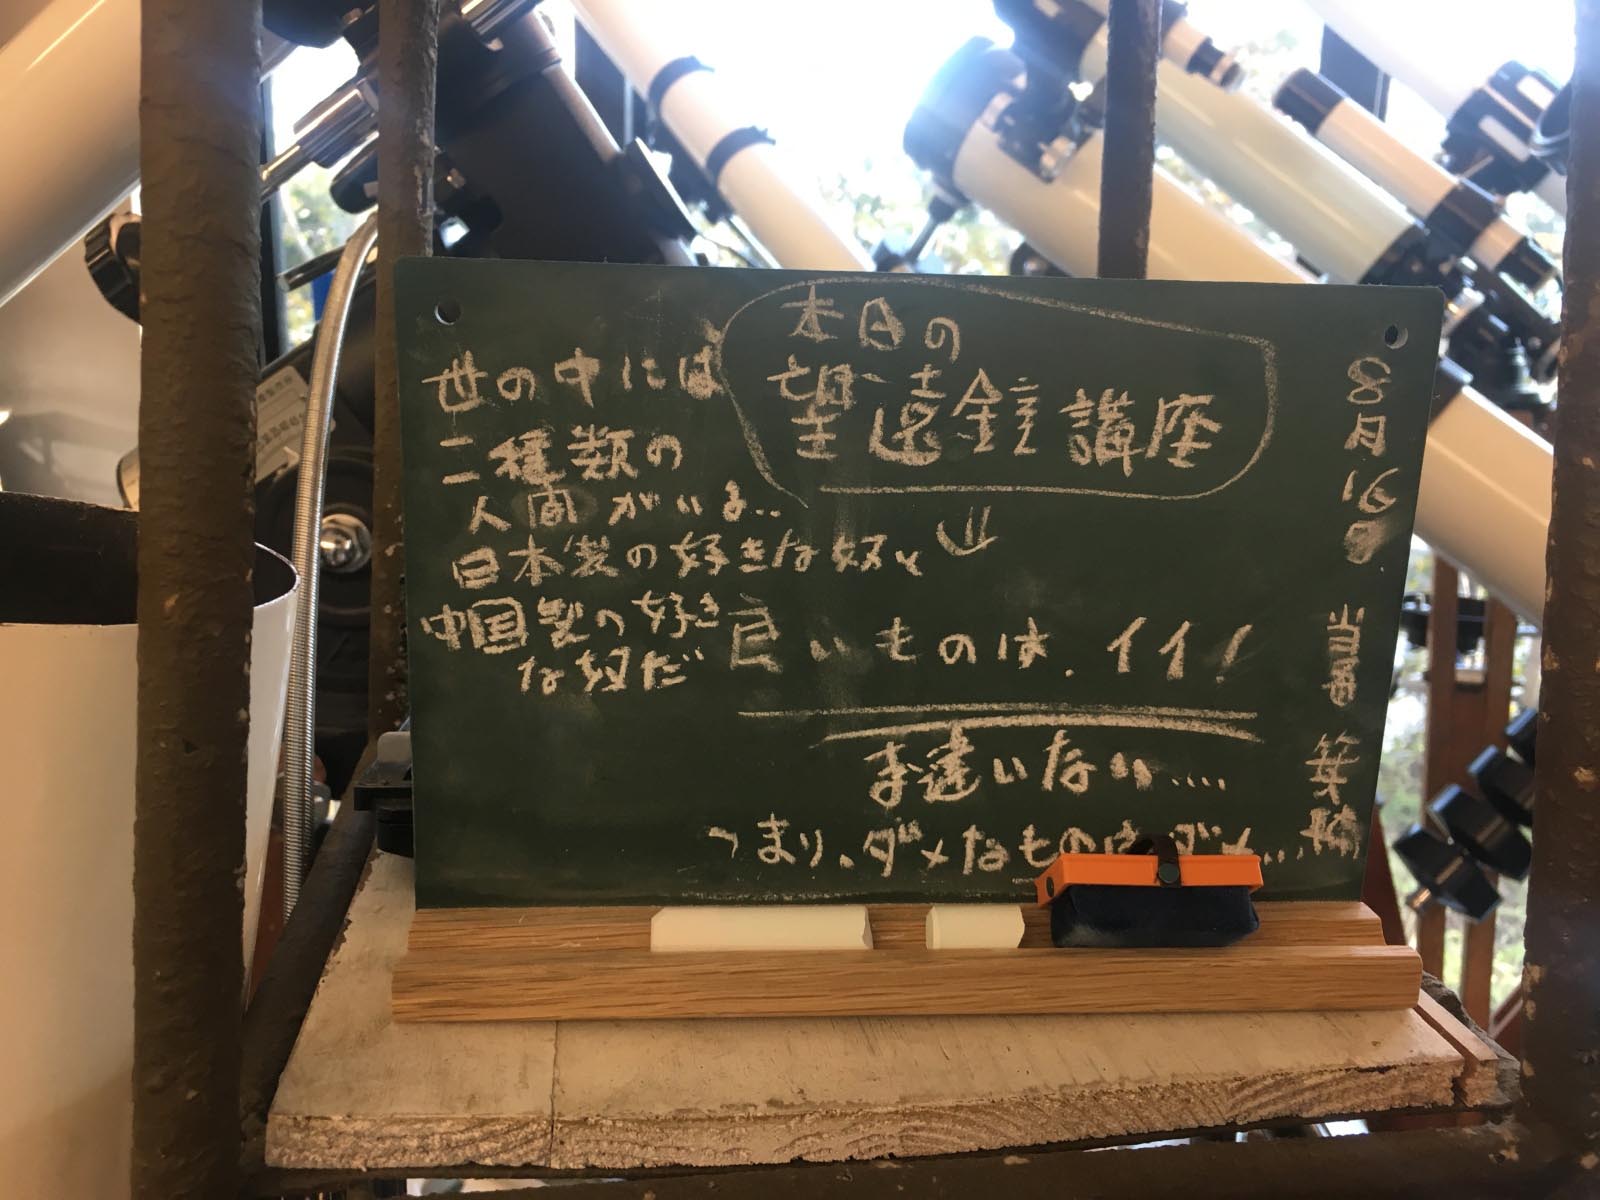 8月16日.
当番 箕輪
本日の
望遠鏡講座
⇓
良いものは、イイ!
ま違いない....
つまり、ダメなものはダメ...
世の中には
二種類の
人間がいる..
日本製の好きな奴と
中国製の好き
な奴だ